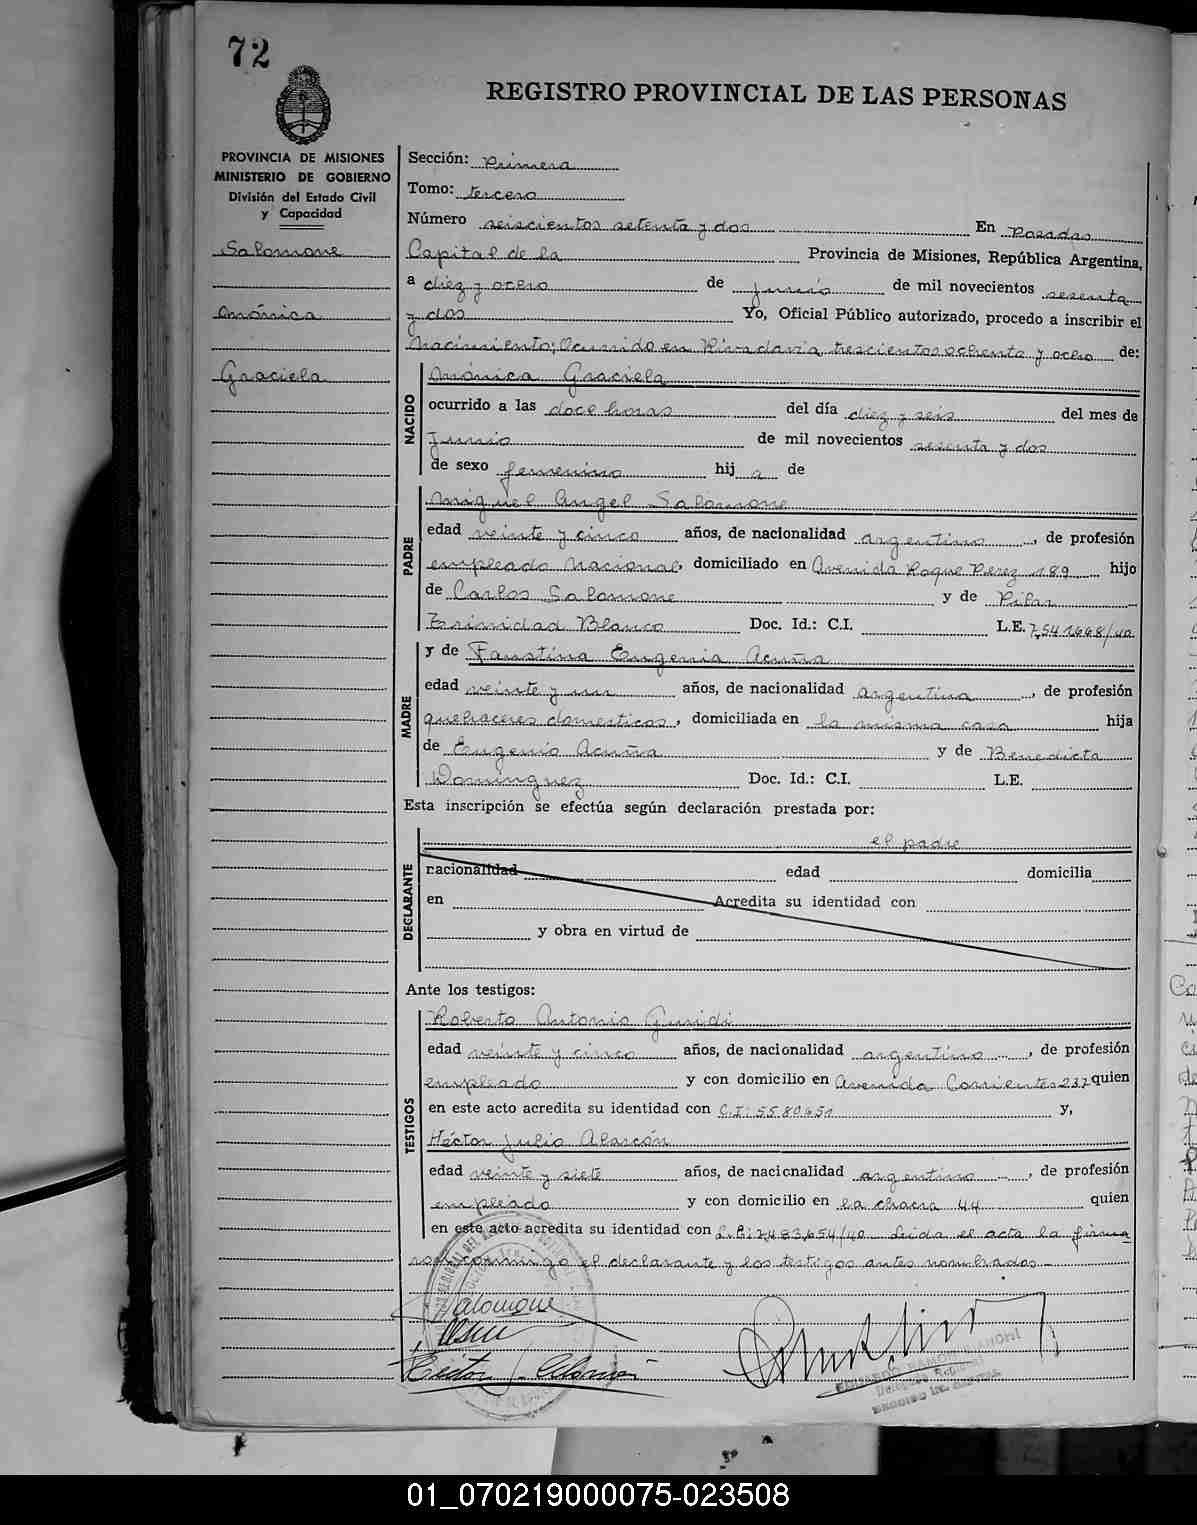 72
REGISTRO PROVINCIAL DE LAS PERSONAS
PROVINCIA DE MISIONES
MINISTERIO DE GOBIERNO
División del Estado Civil
y Capacidad
Salomone
Mónica
Graciela
Sección: Primera
Tomo: tercero
Número seiscientos setenta y dos En Posadas
Capital de la Provincia de Misiones, República Argentina,
a diez y ocho de junio de mil novecientos sesenta
y dos Yo, Oficial Público autorizado, procedo a inscribir el
Nacimiento; Ocurrido en Rivadavia trescientos ochenta y ocho de:
NACIDO
Mónica Graciela
ocurrido a las doce horas del día diez y seis del mes de
Junio de mil novecientos sesenta y dos
de sexo femenino hij a de
PADRE
Miguel Angel Salomone
edad veinte y cinco años, de nacionalidad argentino, de profesión
empleado Nacional, domiciliado en Avenida Roque Perez 189 hijo
de Carlos Salomone y de Pilar
Trinidad Blanco Doc. Id.: C.I. L.E. 7.541.668/40
MADRE
y de Faustina Eugenia Acuña
edad veinte y un años, de nacionalidad argentina, de profesión
quehaceres domesticos, domiciliada en la misma casa hija
de Eugenio Acuña y de Benedicta
Domínguez Doc. Id.: C.I. L.E.
Esta inscripción se efectúa según declaración prestada por:
DECLARANTE
el padre
nacionalidad edad domicilia
en Acredita su identidad con
y obra en virtud de
Ante los testigos:
TESTIGOS
Roberto Antonio Guridi
edad veinte y cinco años, de nacionalidad argentino, de profesión
empleado y con domicilio en Avenida Corrientes 237 quien
en este acto acredita su identidad con C.I: 5580651 y,
Héctor Julio Alarcón
edad veinte y siete años, de nacicnalidad argentino, de profesión
empleado y con domicilio en la chacra 44 quien
en este acto acredita su identidad con L.E: 7.483.654/40 Leida el acta la firma
con conmigo el declarante y los testigos antes nombrados
Salomone
Héctor J. Alarcón
01_070219000075-023508